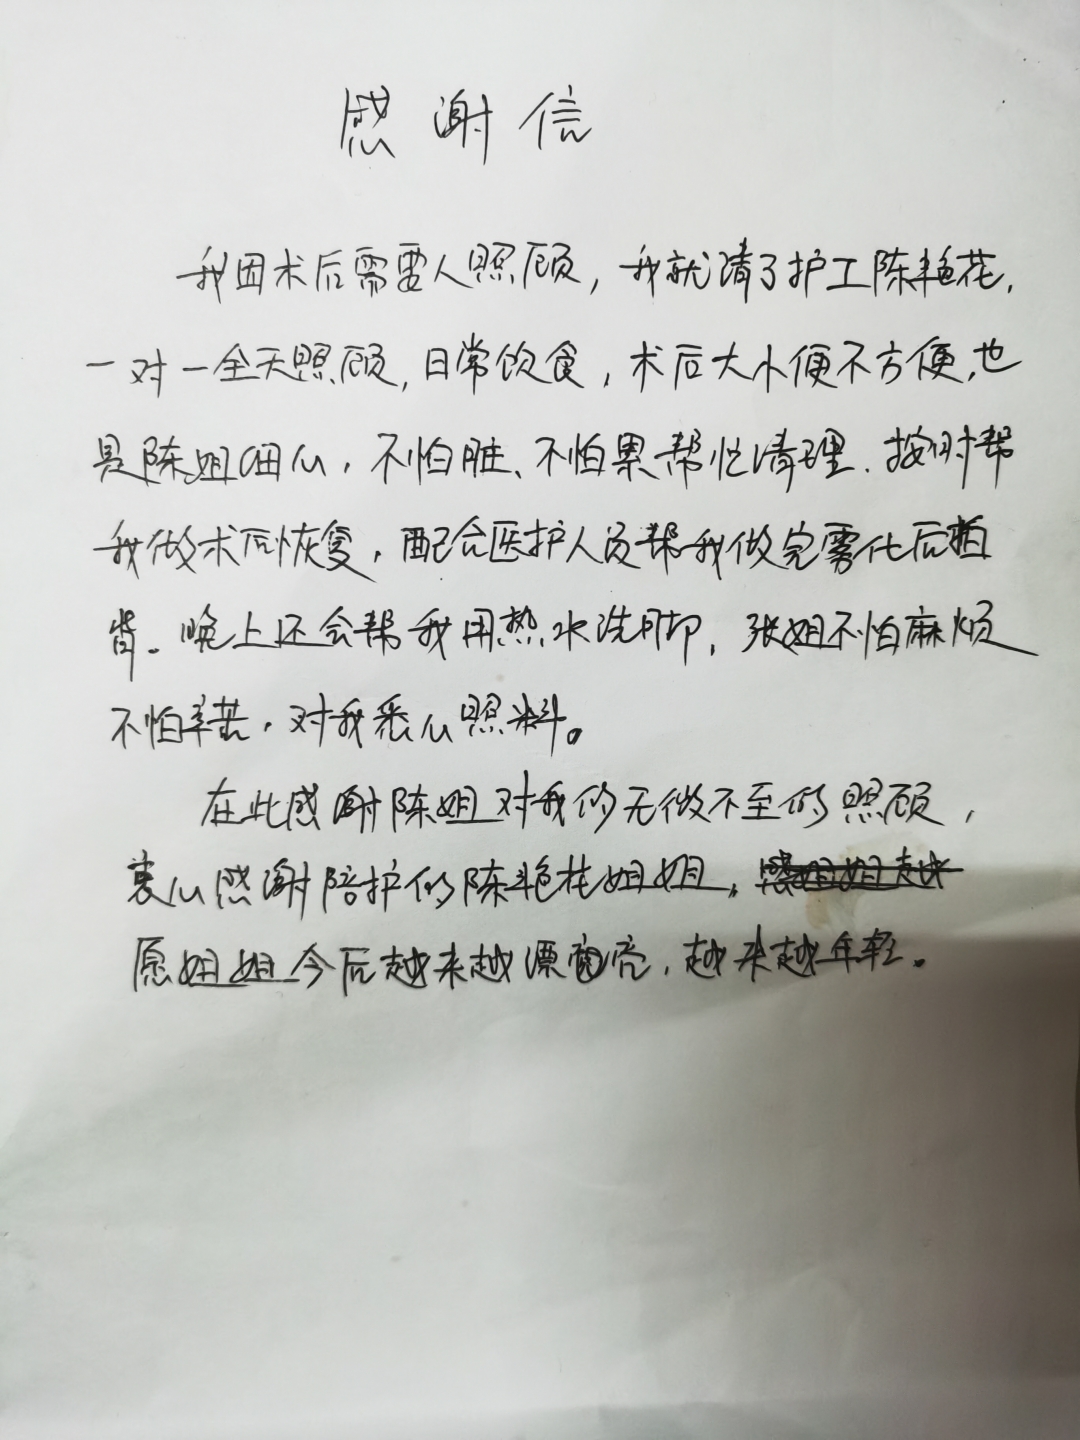 感谢信
我因术后需要人照顾，我就请了护工陈艳花，
一对一全天照顾，日常饮食，术后大小便不方便，也
是陈姐细心，不怕脏、不怕累帮忙清理，按时帮
我做术后恢复，配合医护人员帮我做完雾化后拍
背。晚上还会帮我用热水洗脚，张姐不怕麻烦
不怕辛苦，对我悉心照料。
在此感谢陈姐对我的无微不至的照顾，
衷心感谢陪护的陈艳花姐姐，
愿姐姐今后越来越漂亮，越来越年轻。